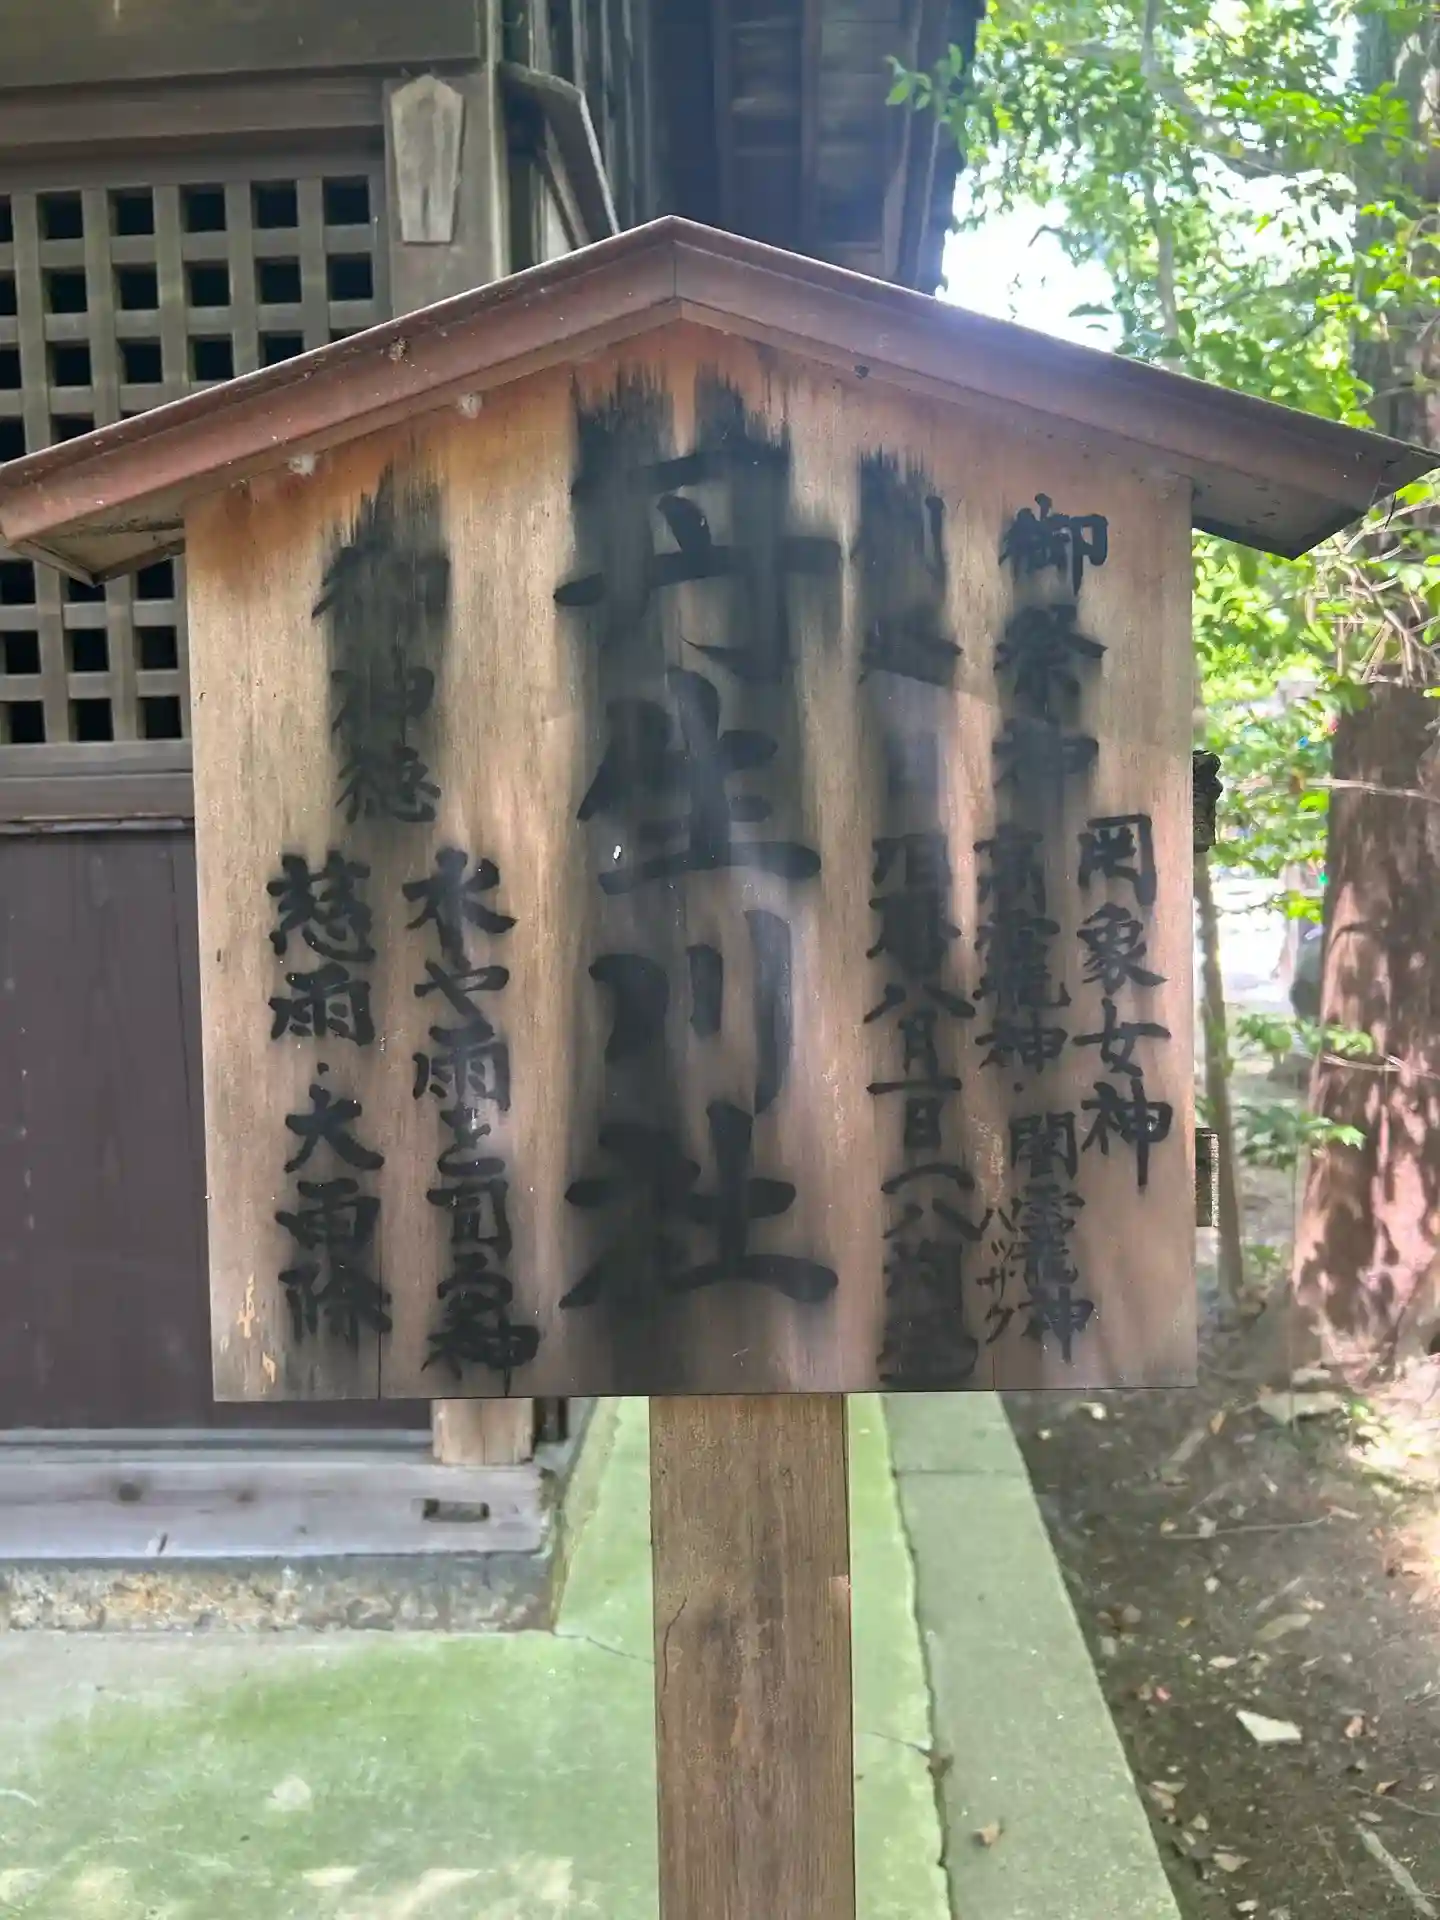 御祭神
罔象女神
高龗神・闇龗神
例祭
旧暦八月一日(八朔
ハッサク
丹生川社
御神徳
水や雨を司る神
慈雨・大雨除